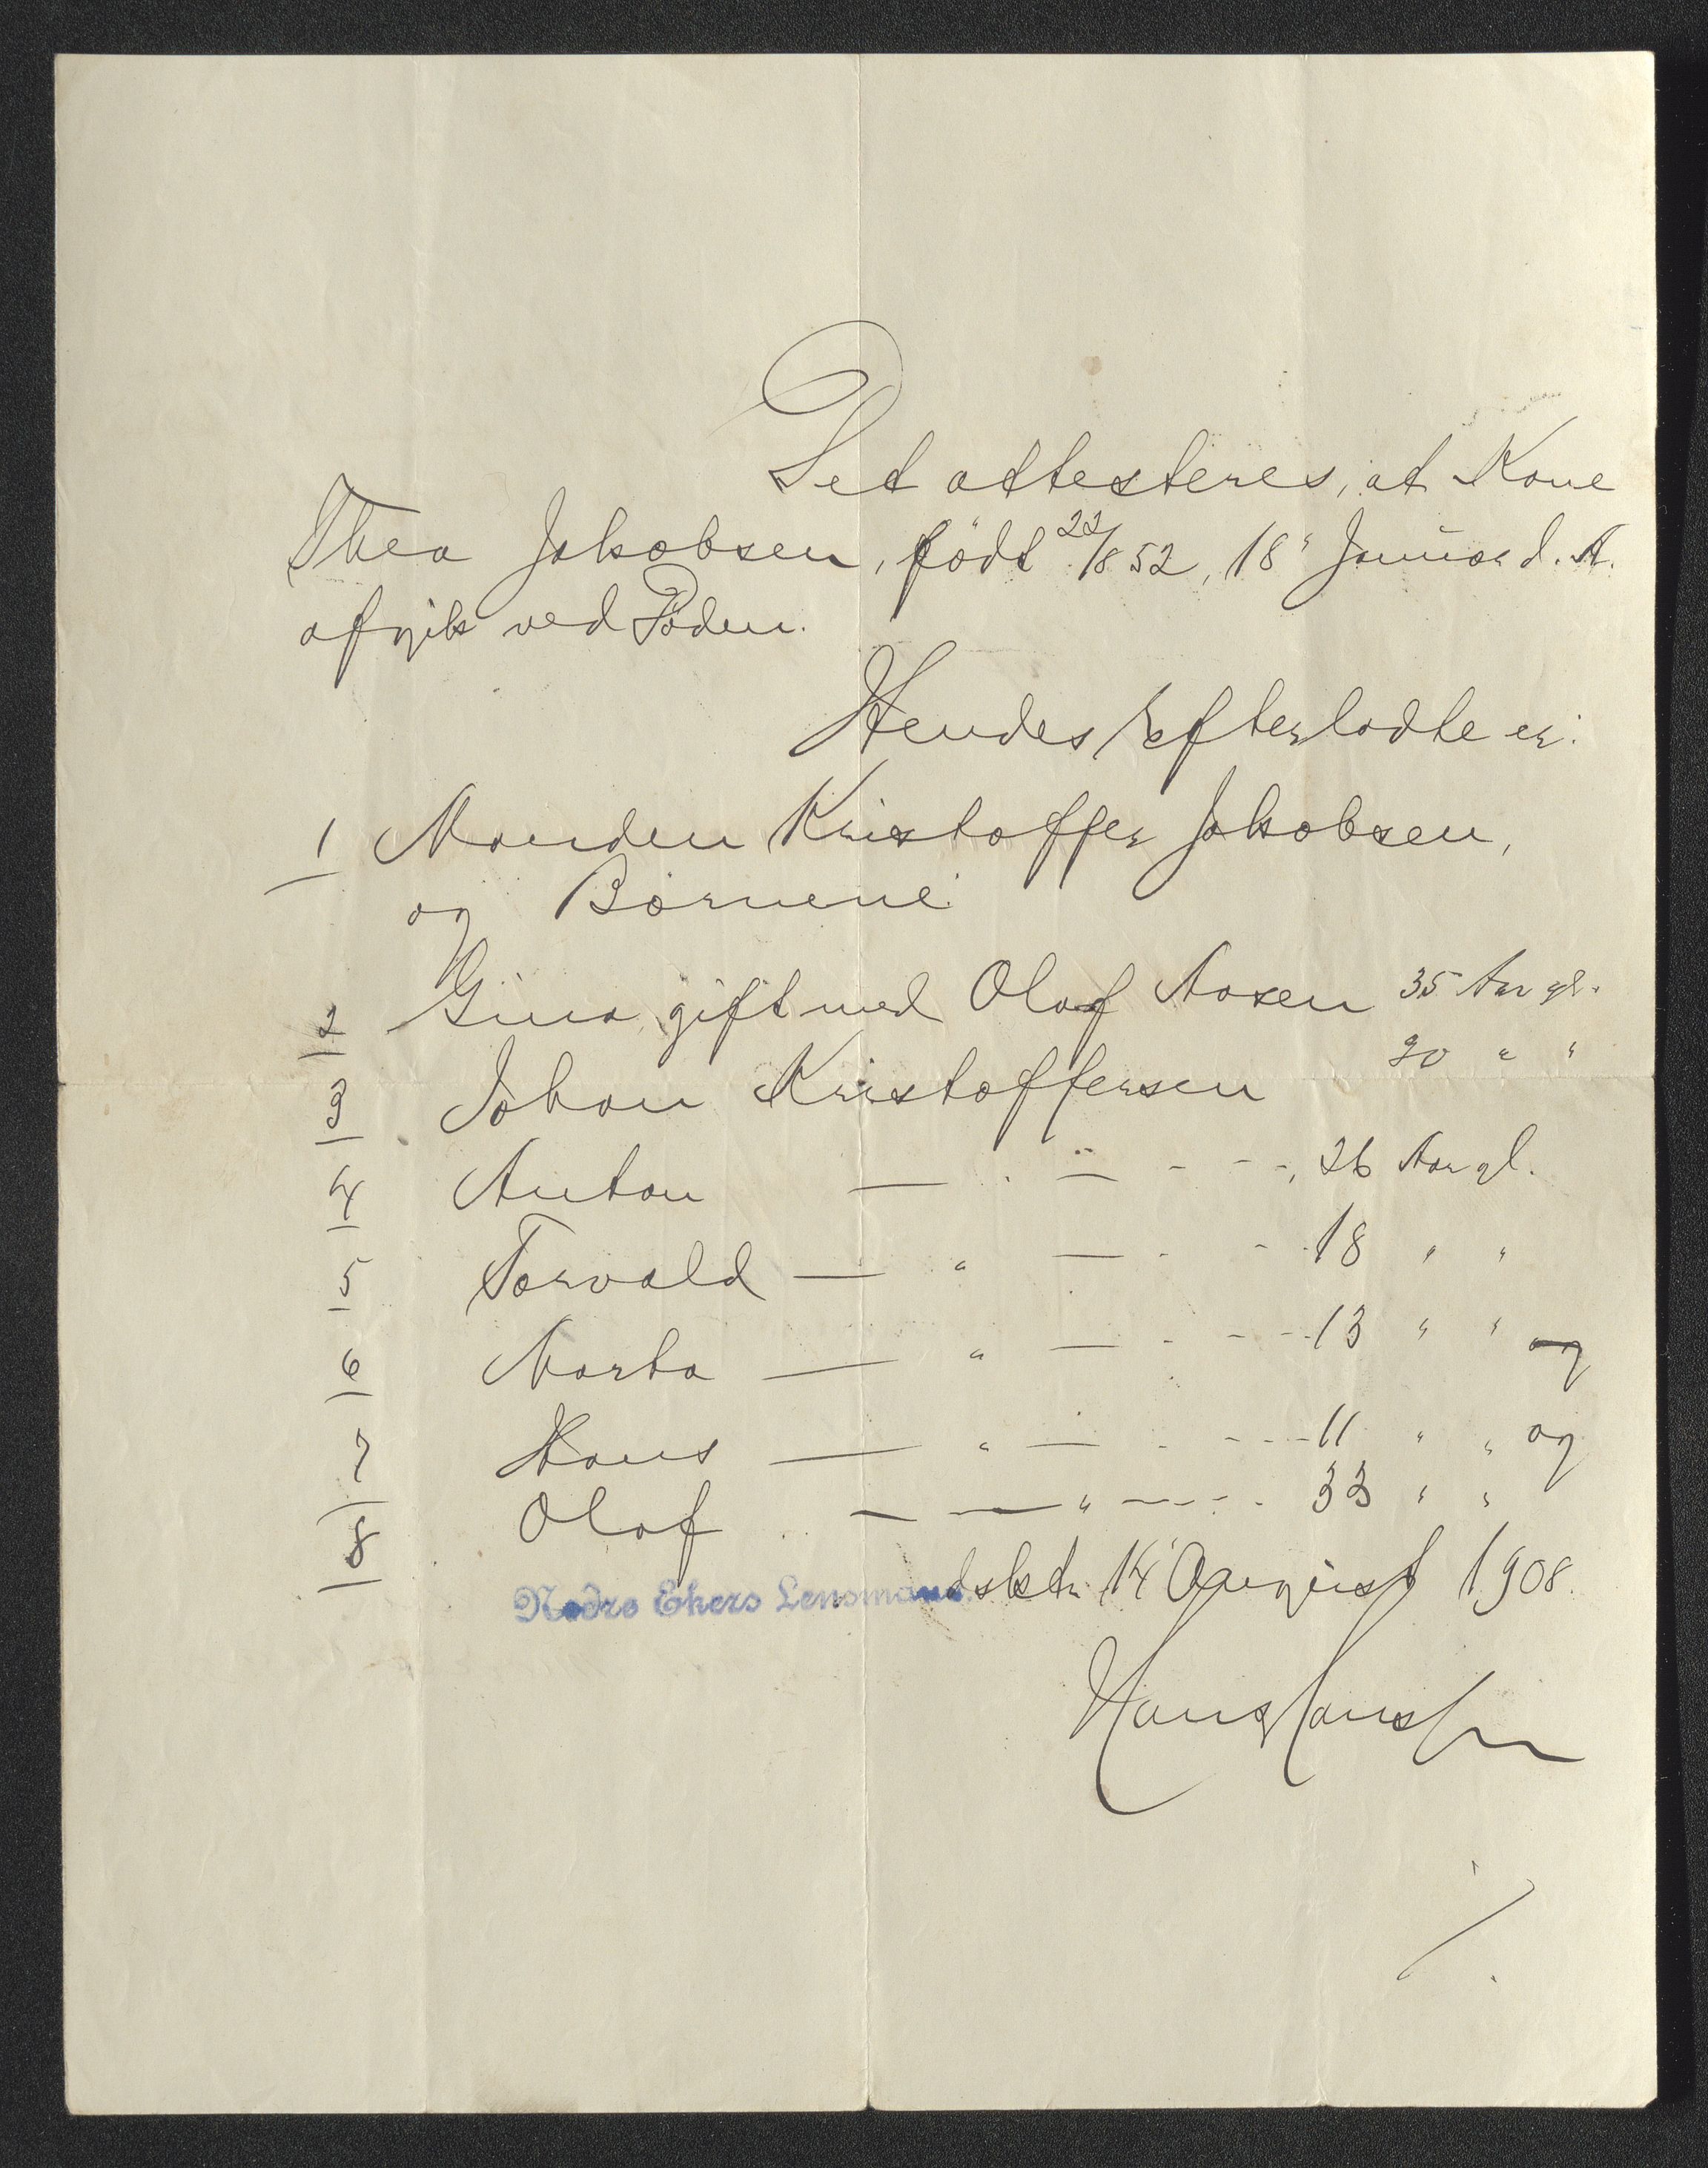 Det attesteres, at Kone
Thea Jakobsen, født 22/1852, 18' Januar d. A.
afgik ved Döden.
Hendes Efterladte er:
1 Manden Kristoffer Jakobsen,
og Börnene:
2 Gina, gift med Olaf Aasen 35 Aar gl.
3 Johan Kristoffersen 30 " "
4 Anton — " — - - -, 26 Aar gl.
5 Torvald — " — - - 18 " "
6 Marta — " — - - - 13 " " og
7 Hans — " — - - - - 11 " " og
8 Olaf — — " — - - - 33 " "
Nedre Ekers Lensmandsktr. 14' August 1908.
Hans Hansen